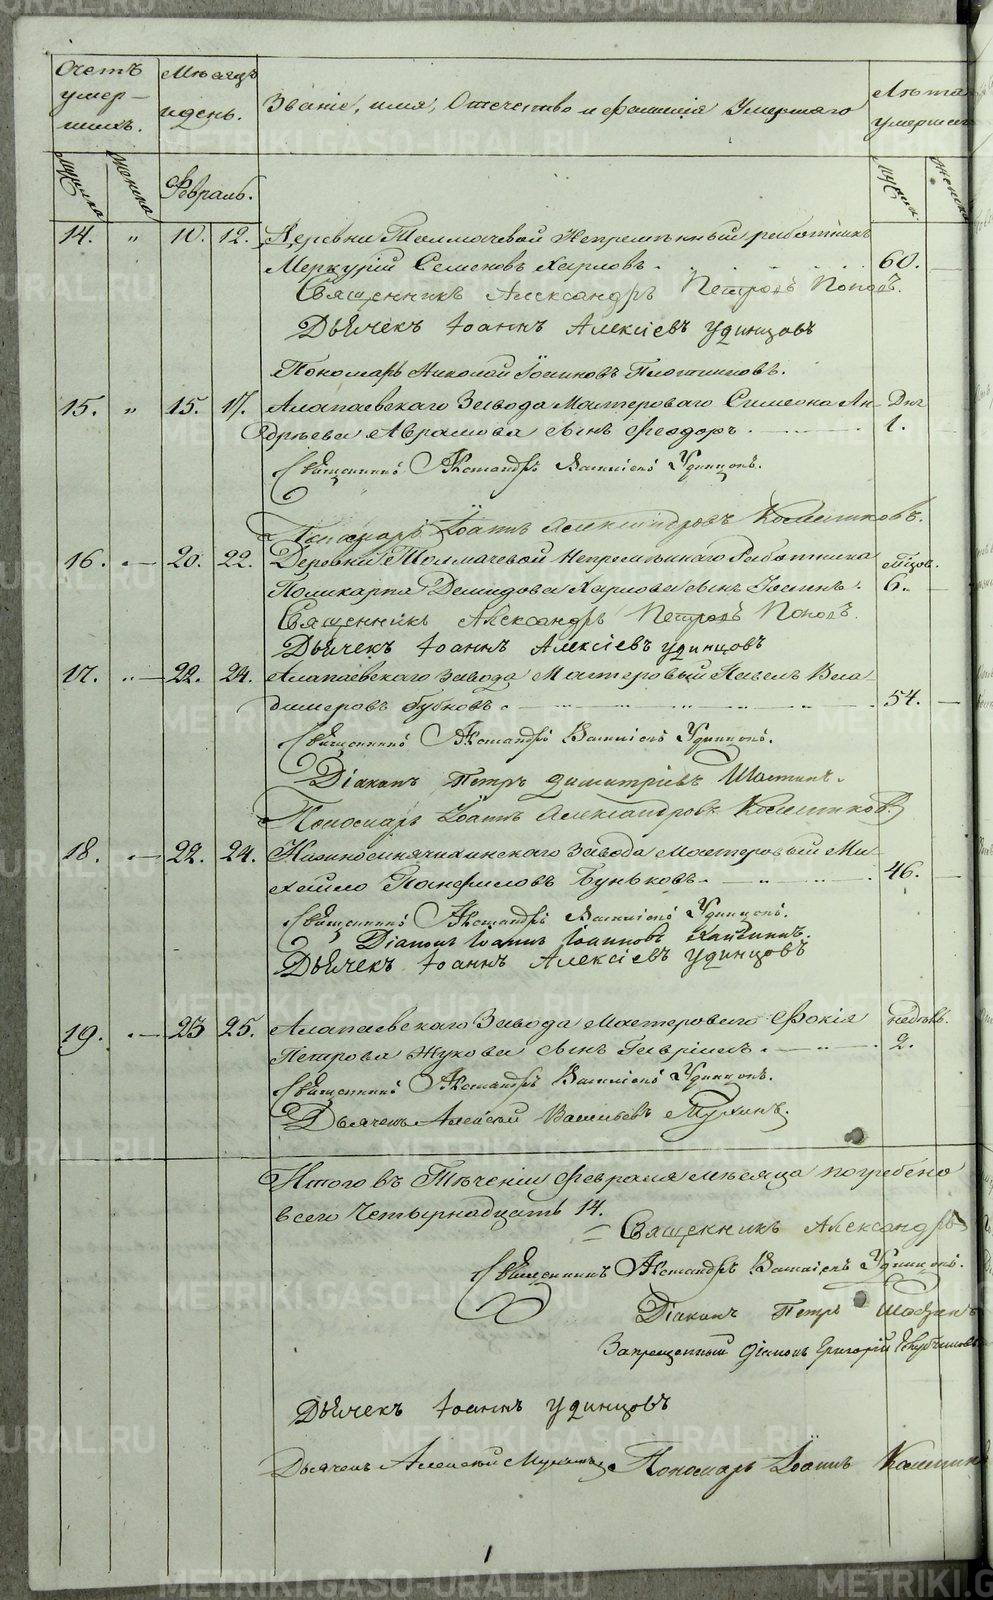 Счетъ умер-шихъ. Мѣсяцъ и день. Званіе, имя, Отечество и фамилія Умершаго Лѣта умершаго
Мужска Женска Февраль. Мужска Женска
14. " 10. 12. Деревни Толмачевой Непремѣнный работникъ
Меркурій Семеновъ Харловъ. 60.
Священникъ Александръ Петровъ Поповъ.
Дьячекъ Іоаннъ Алексіевъ Удинцовъ
Пономарь Николай Іоанновъ Плотниковъ.
15. " 15. 17. Алапаевскаго Завода Мастероваго Симеона Ан- Дня
дрѣева Аврамова сынъ Феодоръ. 1.
Священникъ Александръ Васильевъ Удинцовъ.
Пономарь Іоаннъ Александровъ Колмаковъ.
16. " 20. 22. Деревни Толмачевой Непремѣннаго Работника Мѣсяцов.
Поликарпа Демидова Харлова сынъ Іоаннъ. 6.
Священникъ Александръ Петровъ Поповъ.
Дьячекъ Іоаннъ Алексіевъ Удинцовъ
17. " 22. 24. Алапаевскаго Завода Мастеровый Павелъ Вла
димеровъ Губковъ. 54.
Священникъ Александръ Васильевъ Удинцовъ.
Діаконъ Петръ Димитріевъ
Пономарь Іоаннъ Александровъ
18. " 22. 24. Нижнесинячихинскаго Завода Мастеровый Ми-
хайло Панфиловъ Буньковъ. 46.
Священникъ Александръ Васильевъ Удинцовъ.
Діаконъ Іоаннъ Іоанновъ
Дьячекъ Іоаннъ Алексіевъ Удинцовъ
19. " 23 25. Алапаевскаго Завода Мастероваго Фокія недѣль.
Петрова Жукова сынъ Гавріилъ. 2.
Священникъ Александръ Васильевъ Удинцовъ.
Дьячекъ Алексѣй Васильевъ Мухинъ.
Итого въ Теченіи Февраля мѣсяца погребено
всего Четырнадцать 14.
Священникъ Александръ
Священникъ Александръ Васильевъ Удинцовъ.
Діаконъ Петръ
Запрещенный діаконъ Григорій
Дьячекъ Іоаннъ Удинцовъ
Дьячекъ Алексѣй Мухинъ Пономарь Іоаннъ
METRIKI.GASO-URAL.RU